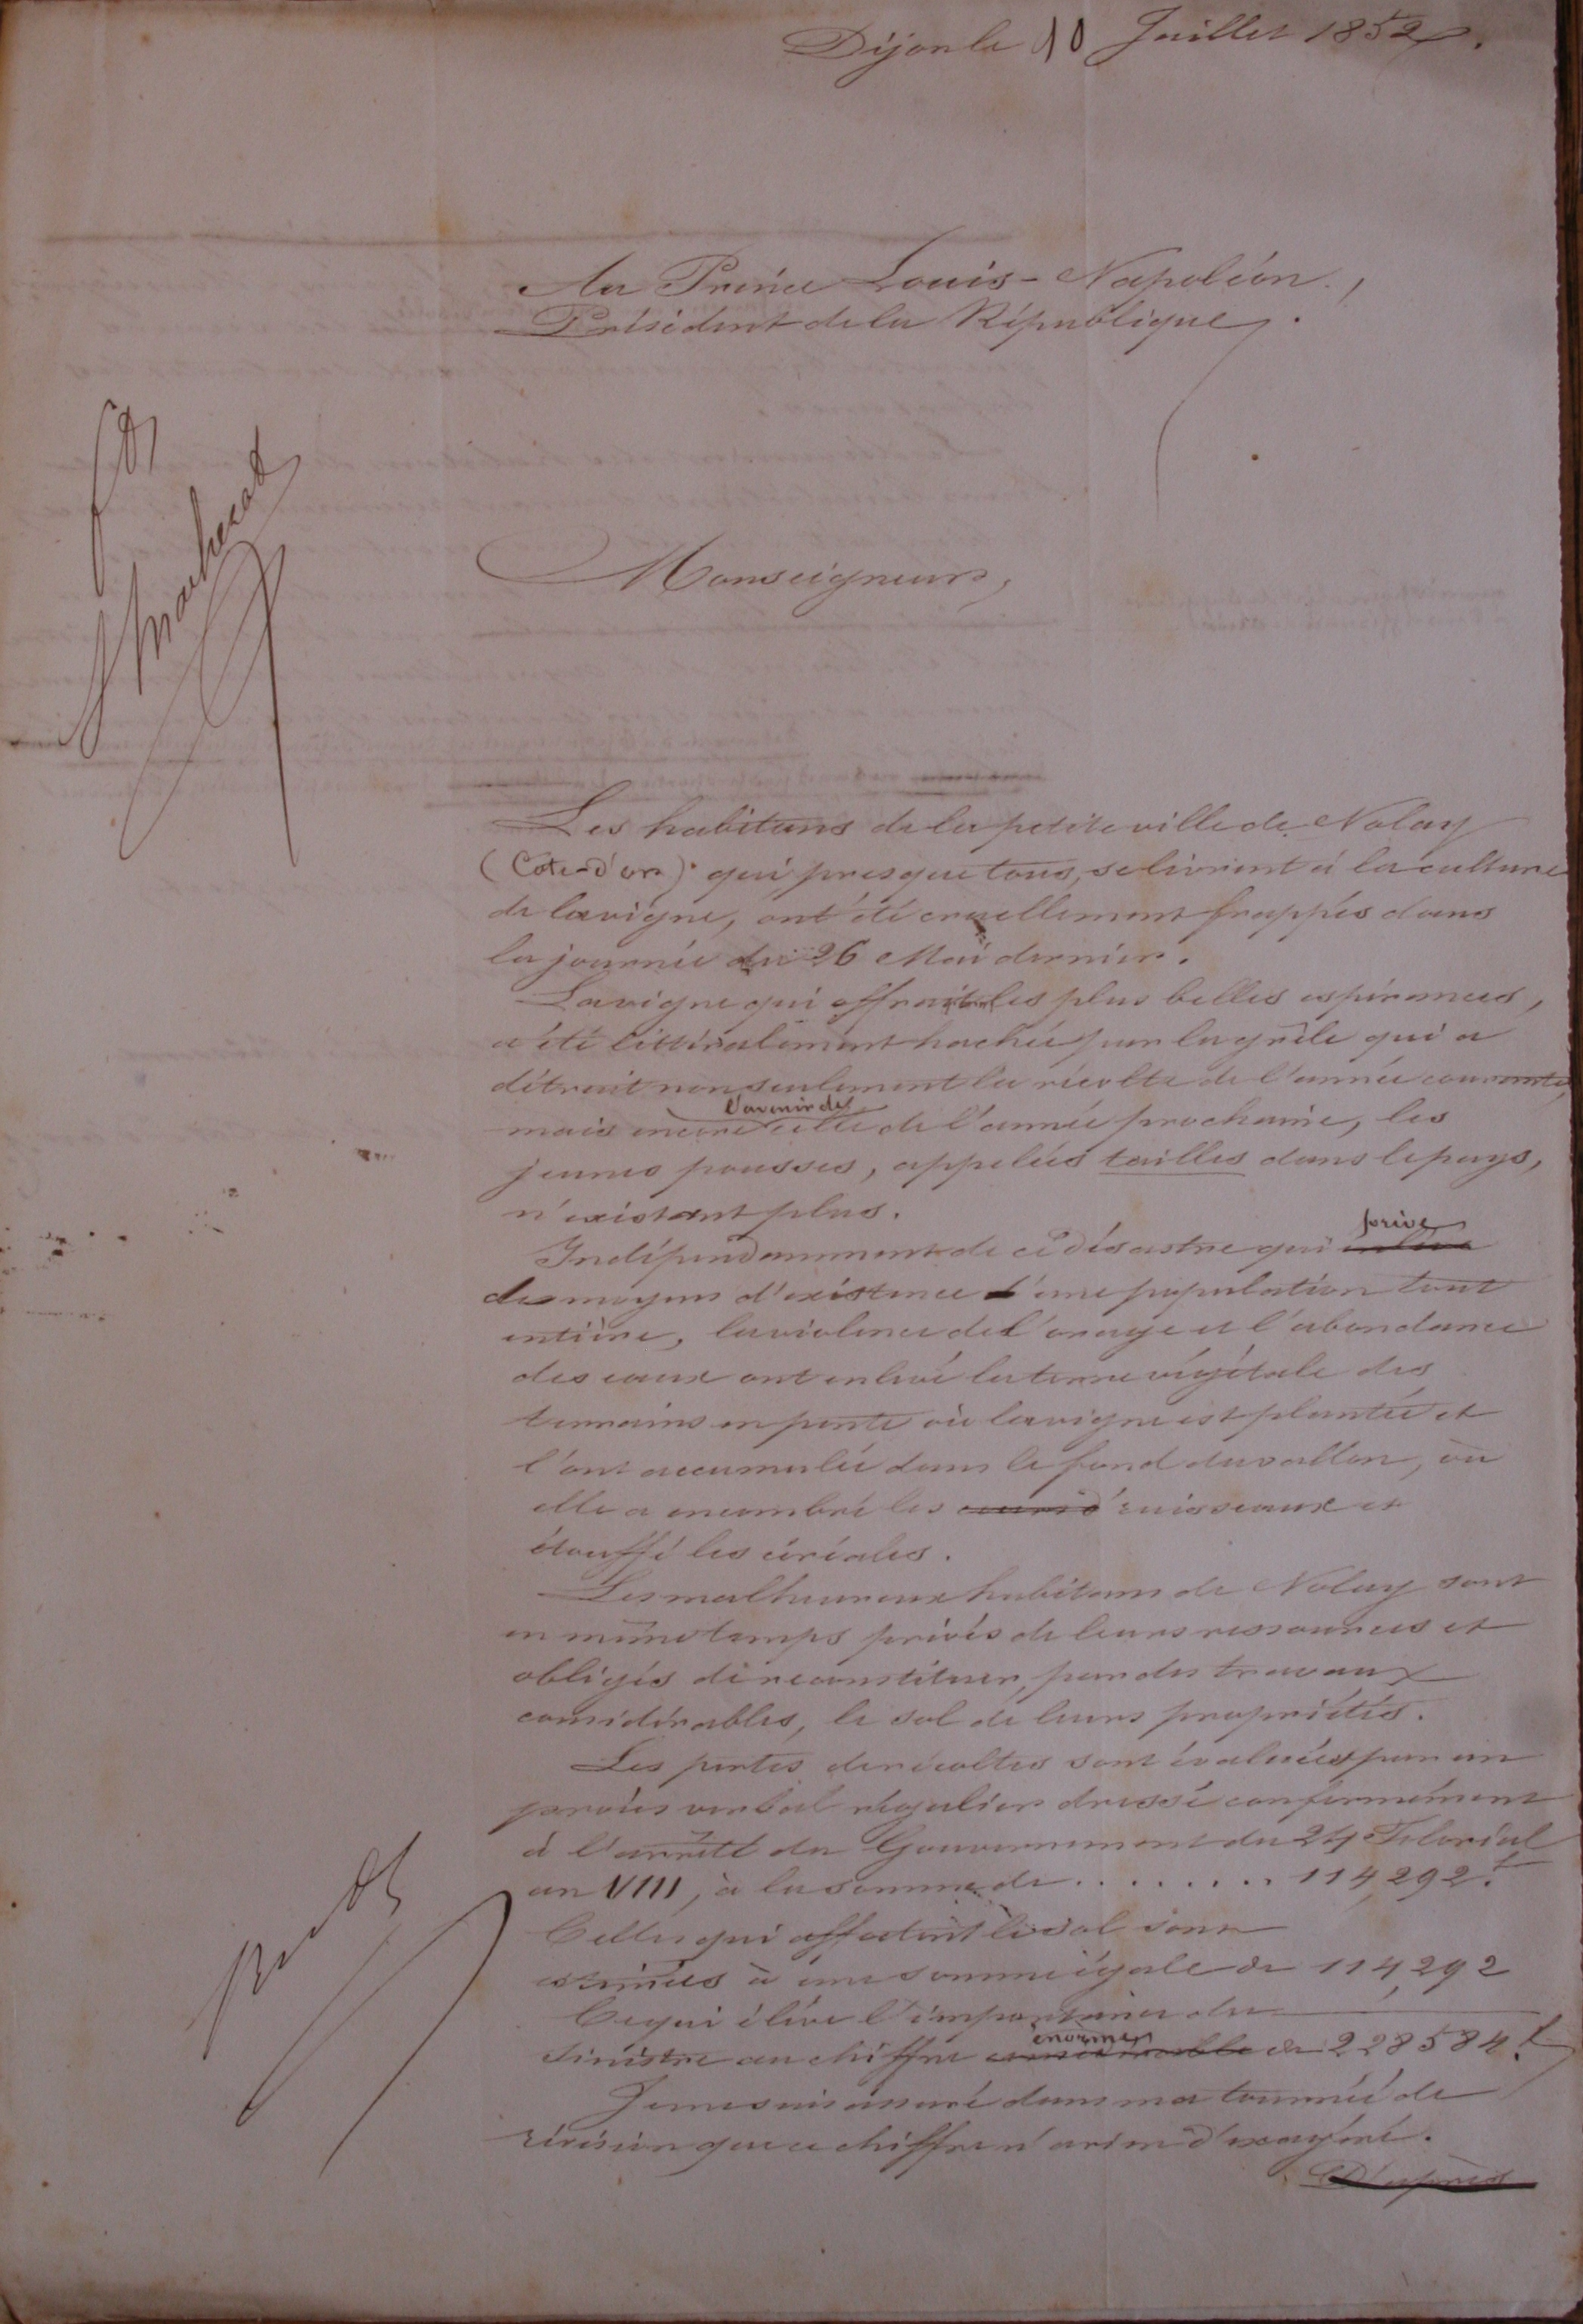 Dijon le 10 Juillet 1852.
Au Prince Louis-Napoléon,
Président de la République.
Monseigneur,
Les habitans de la petite ville de Nolay
(Côte-d'or) qui presque tous, se livrent à la culture
de la vigne, ont été cruellement frappés dans
la journée du 26 Mai dernier.
La vigne qui offrait les plus belles espérances,
a été littéralement hachée par la grêle qui a
détruit non seulement la récolte de l'année courante,
l'avenir de
mais encore celle de l'année prochaine, les
jeunes pousses, appelées tailles dans le pays,
n'existant plus.
prive
Indépendamment de ce désastre qui
des moyens d'existence une population tout
entière, la violence de l'orage et l'abondance
des eaux ont enlevé la terre végétale des
terrains en pente où la vigne est plantée et
l'ont accumulée dans le fond du vallon, où
elle a encombré les ruisseaux et
étouffé les céréales.
Les malheureux habitans de Nolay sont
en même temps privés de leurs ressources et
obligés de reconstituer, par des travaux
considérables, le sol de leurs propriétés.
Les pertes de récoltes sont évaluées par un
procès verbal régulier dressé conformément
à l'arrêté du Gouvernement du 24 Floréal
an VIII, à la somme de ......... 114,292.f
Celles qui affectent le sol sont
estimées à une somme égale de 114,292
Ce qui élève l'importance du
énorme
sinistre au chiffre considérable de 228584.f
Je me suis assuré dans ma tournée de
révision que ce chiffre n'a rien d'exagéré.
D'après